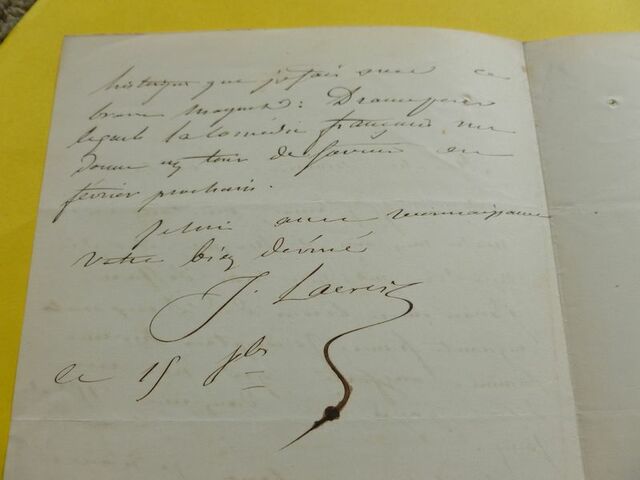 historique que je fais avec ce
brave Maquet : Drame pour
lequel la Comédie française me
donne un tour de faveur en
février prochain.
je suis avec reconnaissance
votre bien dévoué
J. Lacroix
le 15 9bre